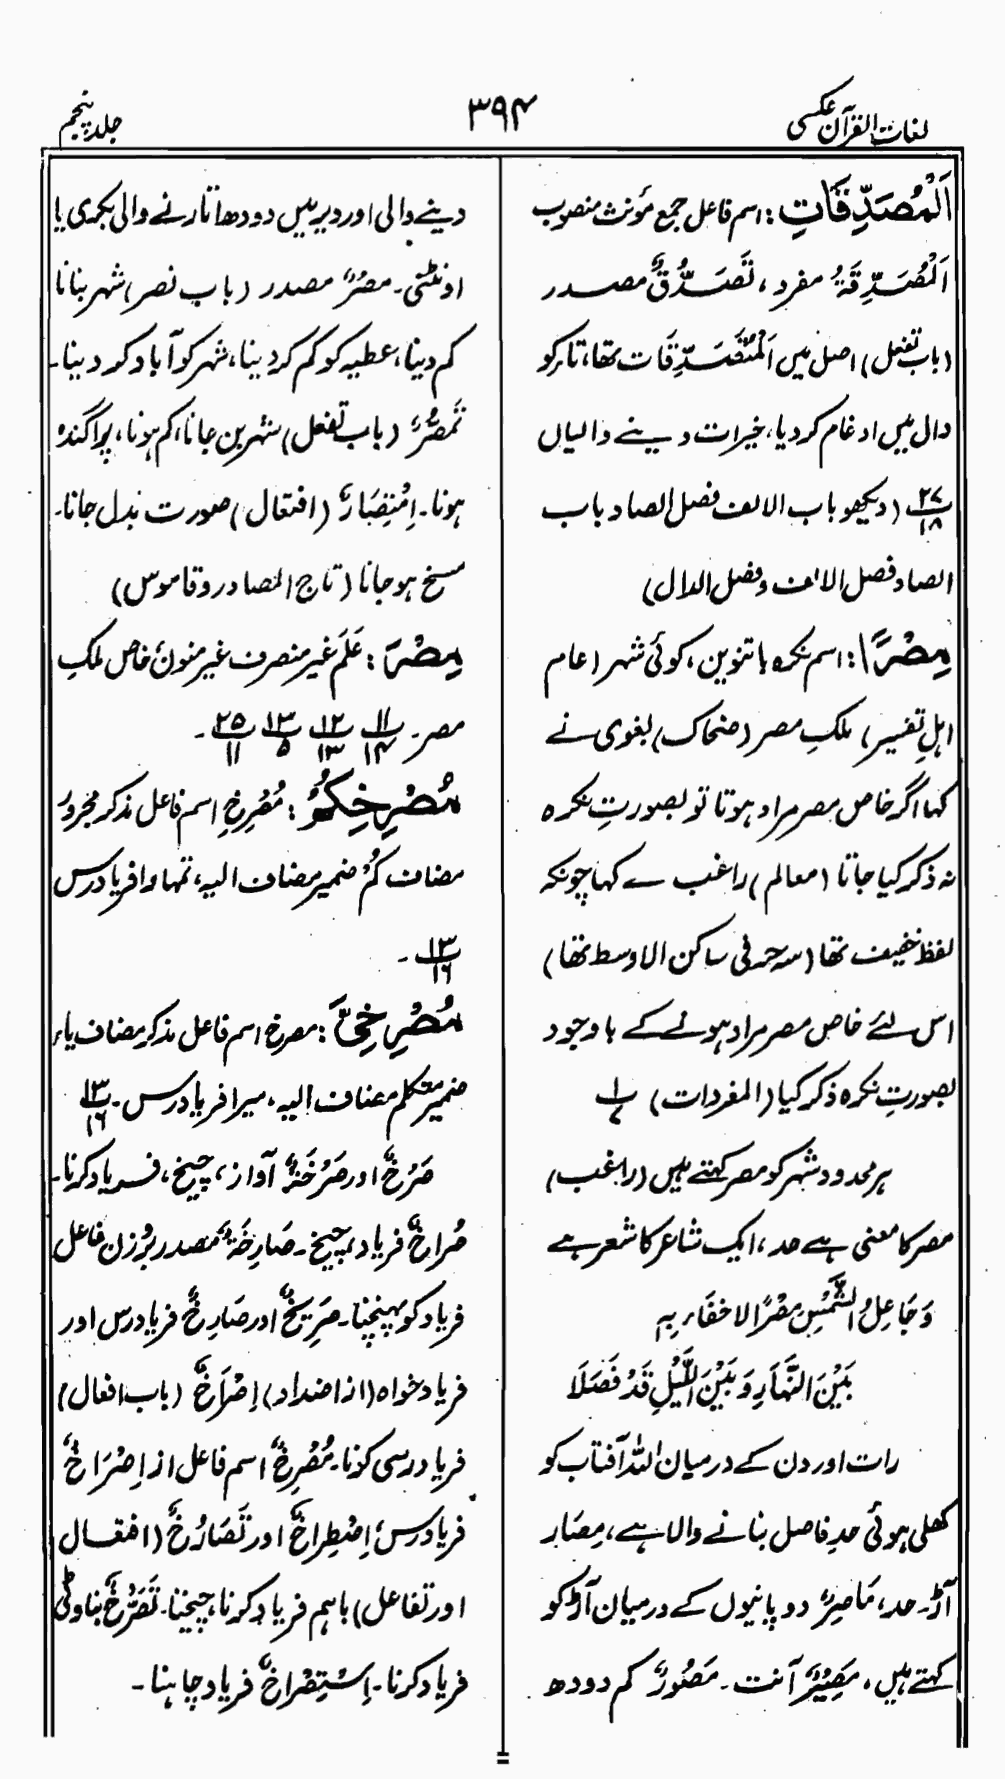 لغات القرآن عکسی
۳۹۴
جلد پنجم
اَلْمُصَدِّقَاتِ: اسم فاعل جمع مؤنث منصوب
اَلْمُصَدِّقَةُ مفرد، تَصَدُّقٌ مصدر
(باب تفعل) اصل میں اَلْمُتَصَدِّقَات تھا، تار کو
دال میں ادغام کردیا، خیرات دینے والیاں
۲۷/۱۸ (دیکھو باب الالف فصل الصاد باب
الصاد فصل الالف و فصل الدال)
مِصْرًا: اسم نکرہ با تنوین، کوئی شہر (عام
اہلِ تفسیر) ملکِ مصر (ضحاک) بغوی نے
کہا اگر خاص مصر مراد ہوتا تو بصورتِ نکرہ
نہ ذکر کیا جاتا (معالم) راغب نے کہا چونکہ
لفظ خفیف تھا (سہ حرفی ساکن الاوسط تھا)
اس لئے خاص مصر مراد ہونے کے باوجود
بصورتِ نکرہ ذکر کیا (المفردات) ۱/۷
ہر محدود شہر کو مصر کہتے ہیں (راغب)
مصر کا معنی ہے حد، ایک شاعر کا شعر ہے
وَجَاعِلُ الشَّمْسِ مِصْرًا لا خفاء بِہٖ
بَيْنَ النَّهَارِ وَبَيْنَ اللَّيْلِ قَدْ فَصَلَا
رات اور دن کے درمیان اللہ آفتاب کو
کھلی ہوئی حدِ فاصل بنانے والا ہے، مِصَار
آڑ۔ حد، مَاصِرٌ دو پانیوں کے درمیان آڑ کو
کہتے ہیں، مَصِيْرٌ آنت۔ مَصُورٌ کم دودھ
دینے والی اور دیر میں دودھ اتارنے والی بکری یا
اونٹنی۔ مصْرٌ مصدر (باب نصر) شہر بنانا
کم دینا، عطیہ کو کم کر دینا، شہر کو آباد کر دینا۔
تَمَصُّرٌ (باب تفعل) شہر بن جانا، کم ہونا، پراگندہ
ہونا۔ اِمْتِصَارٌ (افتعال) صورت بدل جانا۔
مسخ ہو جانا (تاج المصادر و قاموس)
مِصْرَ: عَلَم غیر منصرف غیر منون خاص ملکِ
مصر۔ ۱۱/۱۴ ۱۲/۱۳ ۱۳/۵ ۲۵/۱۱ ۔
مُصْرِخِكُمْ: مُصْرِخِ اسم فاعل مذکر مجرور
مضاف کُمْ ضمیر مضاف الیہ، تمہارا فریادرس
۱۳/۱۶ ۔
مُصْرِخِيَّ: مصرخ اسم فاعل مذکر مضاف یاء
ضمیر متکلم مضاف الیہ، میرا فریادرس۔ ۱۳/۱۶
صَرْخٌ اور صَرْخَةٌ آواز، چیخ، فریاد کرنا۔
صُراخٌ فریاد، چیخ۔ صَارِخَةٌ مصدر بوزن فاعل
فریاد کو پہنچنا۔ صَرِيْخٌ اور صَارِخٌ فریادرس اور
فریاد خواہ (از اضداد) اِصْرَاخٌ (باب افعال)
فریاد رسی کرنا۔ مُصْرِخٌ اسم فاعل از اِصْرَاخٌ
فریادرس، اِصْطِرَاخٌ اور تَصَارُخٌ (افتعال
اور تفاعل) باہم فریاد کرنا، چیخنا۔ تَصَرُّخٌ بناوٹی
فریاد کرنا۔ اِسْتِصْرَاخٌ فریاد چاہنا۔